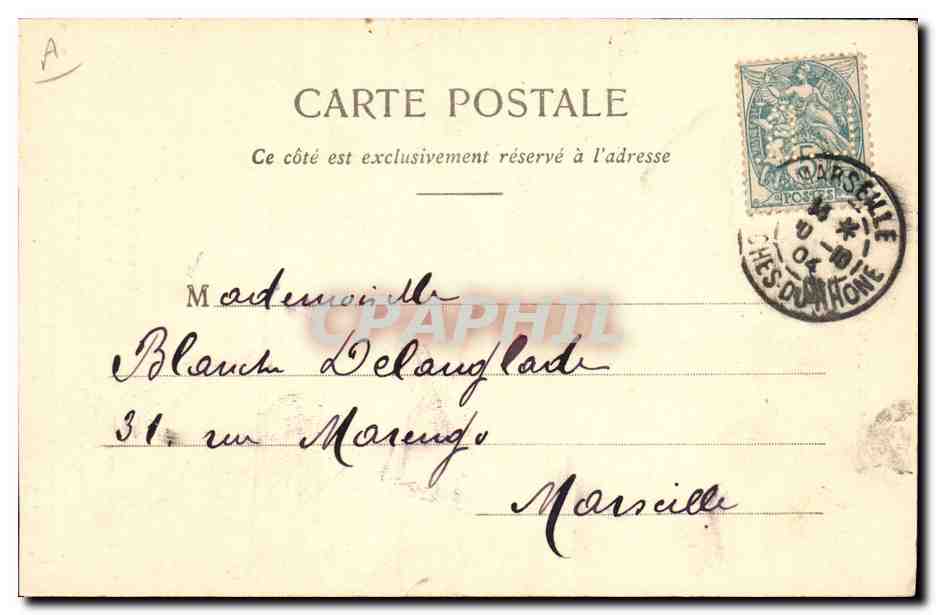 A
CARTE POSTALE
Ce côté est exclusivement réservé à l'adresse
5
POSTES
MARSEILLE
10
04
CHES-DU-RHONE
Mademoiselle
CPAPHIL
Blanche Delanglade
31. rue Marengo
Marseille